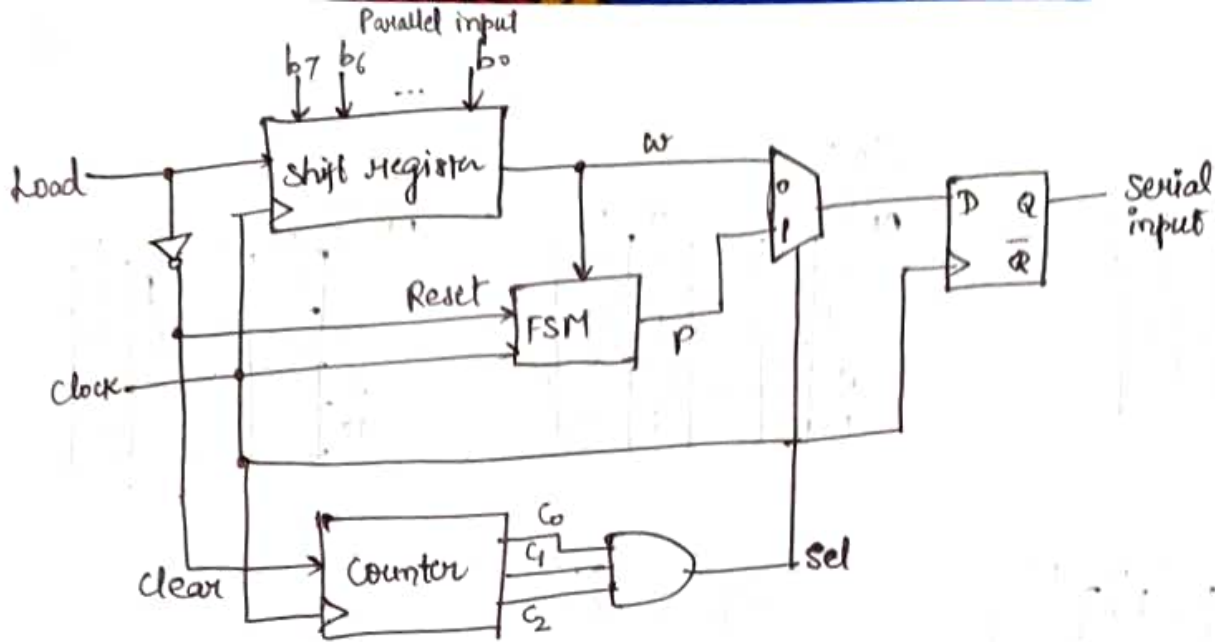 Parallel input
b7 b6 ... b0
Load
Shift register
w
0
1
D Q
Q̅
Serial
input
Reset
FSM
P
Clock
Clear
Counter
C0
C1
C2
Sel